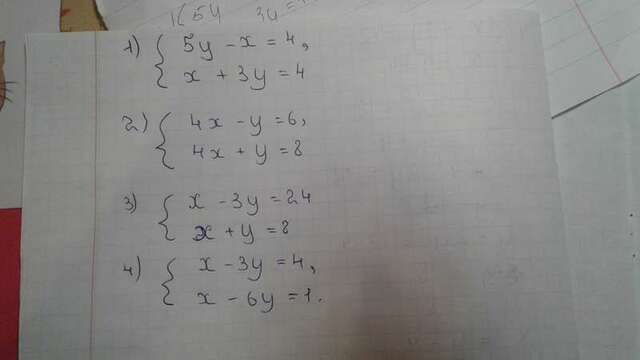 1) { 5y - x = 4,
x + 3y = 4
2) { 4x - y = 6,
4x + y = 8
3) { x - 3y = 24
x + y = 8
4) { x - 3y = 4,
x - 6y = 1.